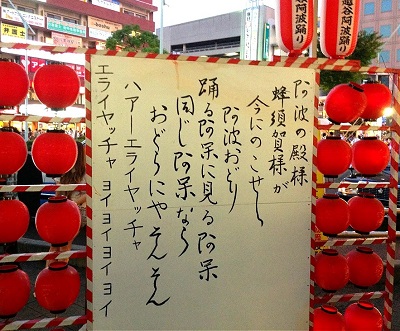 阿波の殿様
蜂須賀様が
今にのこせし
阿波おどり
踊る阿呆に見る阿呆
同じ阿呆なら
おどらにゃそんそん
ハアーエライヤッチャ
エライヤッチャ ヨイヨイヨイヨイ
越谷阿波踊り
弁護士